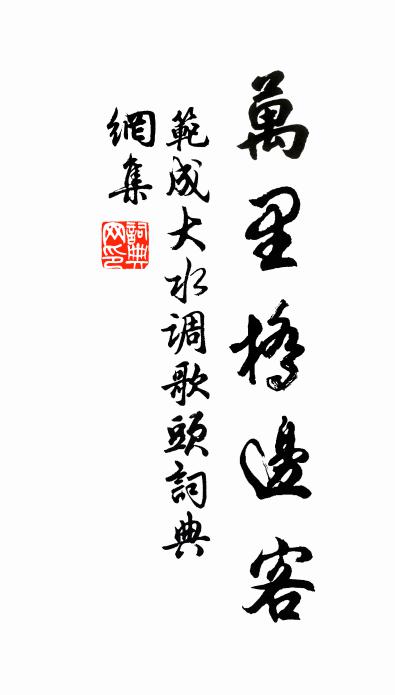 萬里橋邊客
範成大水调歌頭詞典
網集
詞典
网印